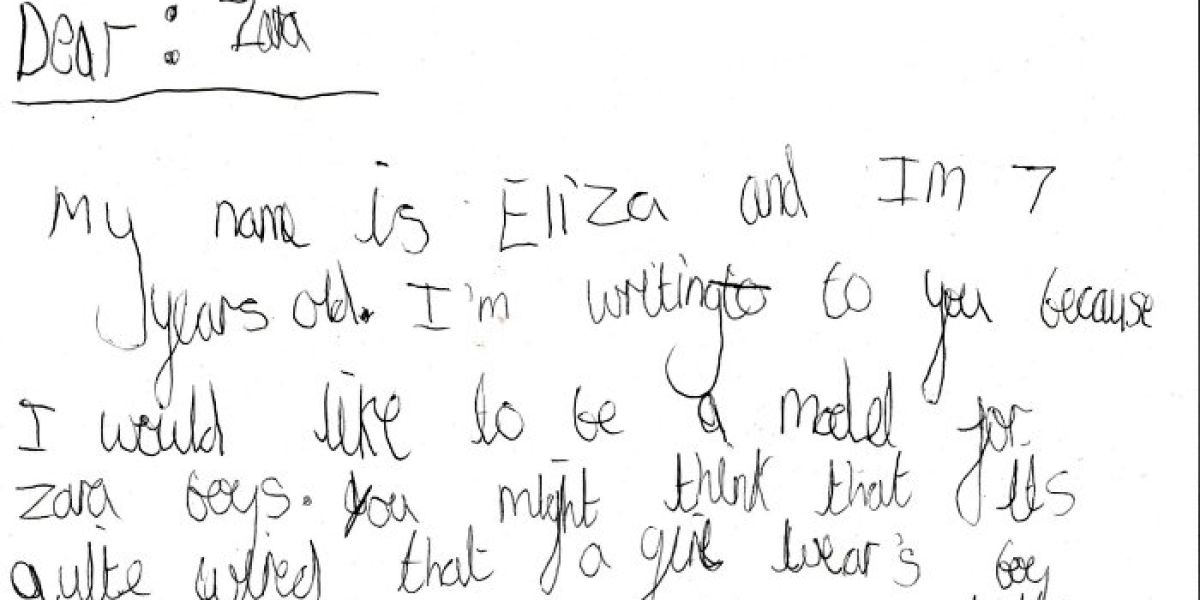 Dear : Zara
My name is Eliza and Im 7
years old. I'm writing to you because
I would like to be a model for
Zara boys. You might think that its
quite wired that a girl wear's boy